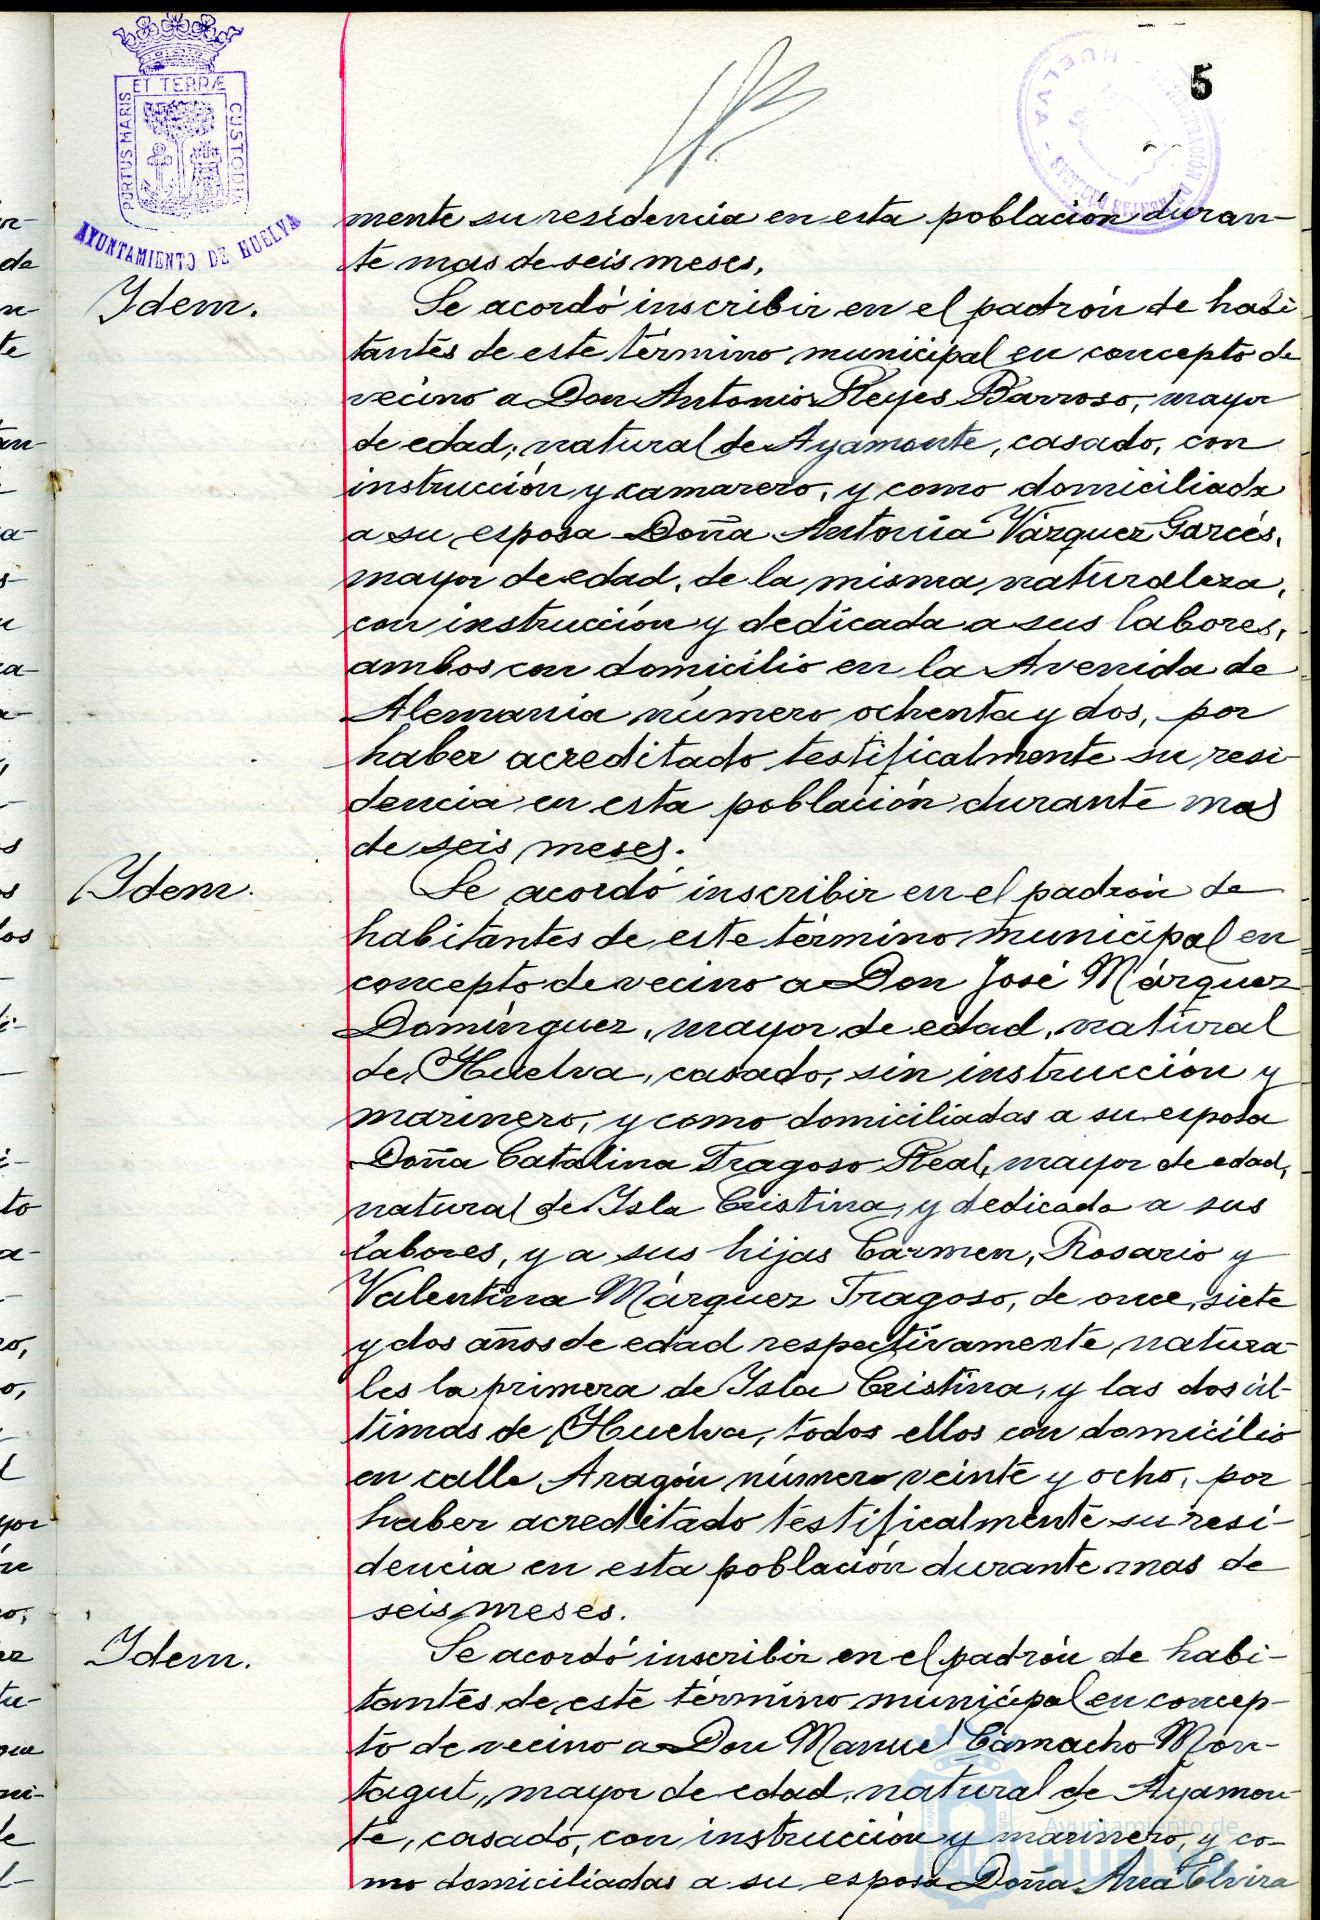 5
PORTUS MARIS ET TERRÆ CUSTODIA
AYUNTAMIENTO DE HUELVA
HUELVA
mente su residencia en esta población duran-
te mas de seis meses.
Ydem.
Se acordó inscribir en el padrón de habi-
tantes de este término municipal en concepto de
vecino a Don Antonio Reyes Barroso, mayor
de edad, natural de Ayamonte, casado, con
instrucción y camarero, y como domiciliada
a su esposa Doña Antonia Vázquez Garcés,
mayor de edad, de la misma naturaleza,
con instrucción y dedicada a sus labores,
ambos con domicilio en la Avenida de
Alemania número ochenta y dos, por
haber acreditado testificalmente su resi-
dencia en esta población durante mas
de seis meses.
Ydem.
Se acordó inscribir en el padrón de
habitantes de este término municipal en
concepto de vecino a Don José Márquez
Domínguez, mayor de edad, natural
de Huelva, casado, sin instrucción y
marinero, y como domiciliadas a su esposa
Doña Catalina Fragoso Real, mayor de edad,
natural de Isla Cristina, y dedicada a sus
labores, y a sus hijas Carmen, Rosario y
Valentina Márquez Fragoso, de once, siete
y dos años de edad respectivamente, natura-
les la primera de Isla Cristina, y las dos úl-
timas de Huelva, todos ellos con domicilio
en calle Aragón número veinte y ocho, por
haber acreditado testificalmente su resi-
dencia en esta población durante mas de
seis meses.
Ydem.
Se acordó inscribir en el padrón de habi-
tantes de este término municipal en concep-
to de vecino a Don Manuel Camacho Mon-
tagut, mayor de edad, natural de Ayamon-
te, casado, con instrucción y marinero, y co-
mo domiciliadas a su esposa Doña Ana Elvira
Ayuntamiento de
HUELVA